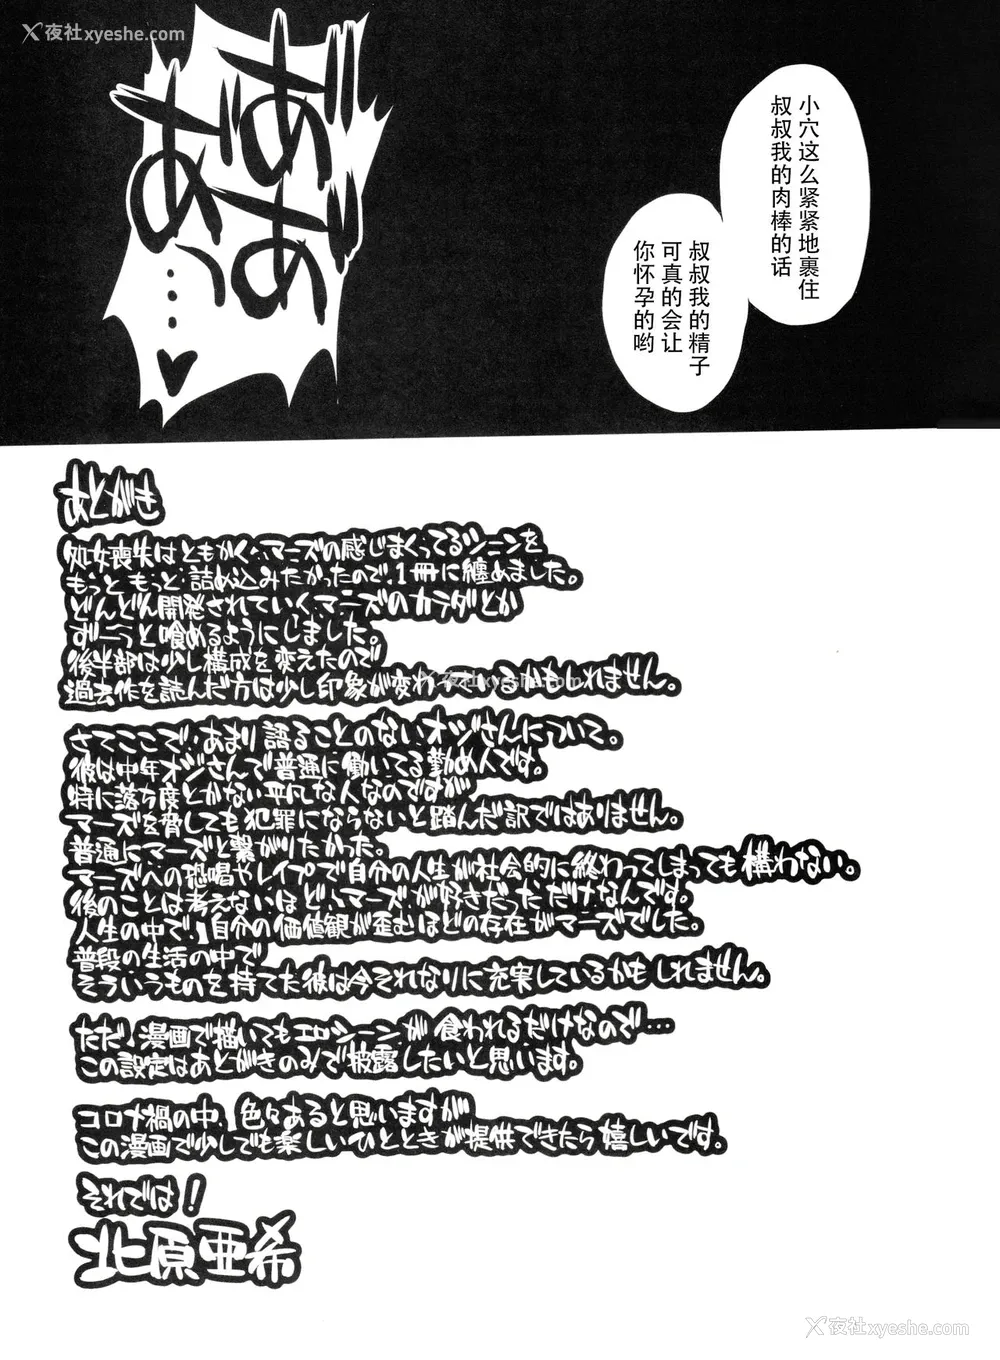 夜社xyeshe.com
小穴这么紧紧地裹住
叔叔我的肉棒的话
叔叔我的精子
可真的会让
你怀孕的哟
あとがき
処女喪失はともかく、マーズの感じまくってるシーンを
もっともっと詰め込みたかったので、1冊に纏めました。
どんどん開発されていくマーズのカラダとか
ずーっと喰めるようにしました。
後半部は少し構成を変えたので
過去作を読んだ方は少し印象が変わっているかもしれません。
夜社xyeshe.com
さてここで、あまり語ることのないオジさんについて。
彼は中年オジさんで普通に働いてる勤め人です。
特に落ち度とかない平凡な人なのですが
マーズを脅しても犯罪にならないと踏んだ訳ではありません。
普通にマーズと繋がりたかった。
マーズへの恐喝やレイプで自分の人生が社会的に終わってしまっても構わない。
後のことは考えないほど、マーズが好きだっただけなんです。
人生の中で、自分の価値観が歪むほどの存在がマーズでした。
普段の生活の中で
そういうものを持てた彼は今それなりに充実しているかもしれません。
ただ、漫画で描いてもエロシーンが食われるだけなので…
この設定はあとがきのみで披露したいと思います。
コロナ禍の中、色々あると思いますが
この漫画で少しでも楽しいひとときが提供できたら嬉しいです。
それでは！
北原亜希
夜社xyeshe.com